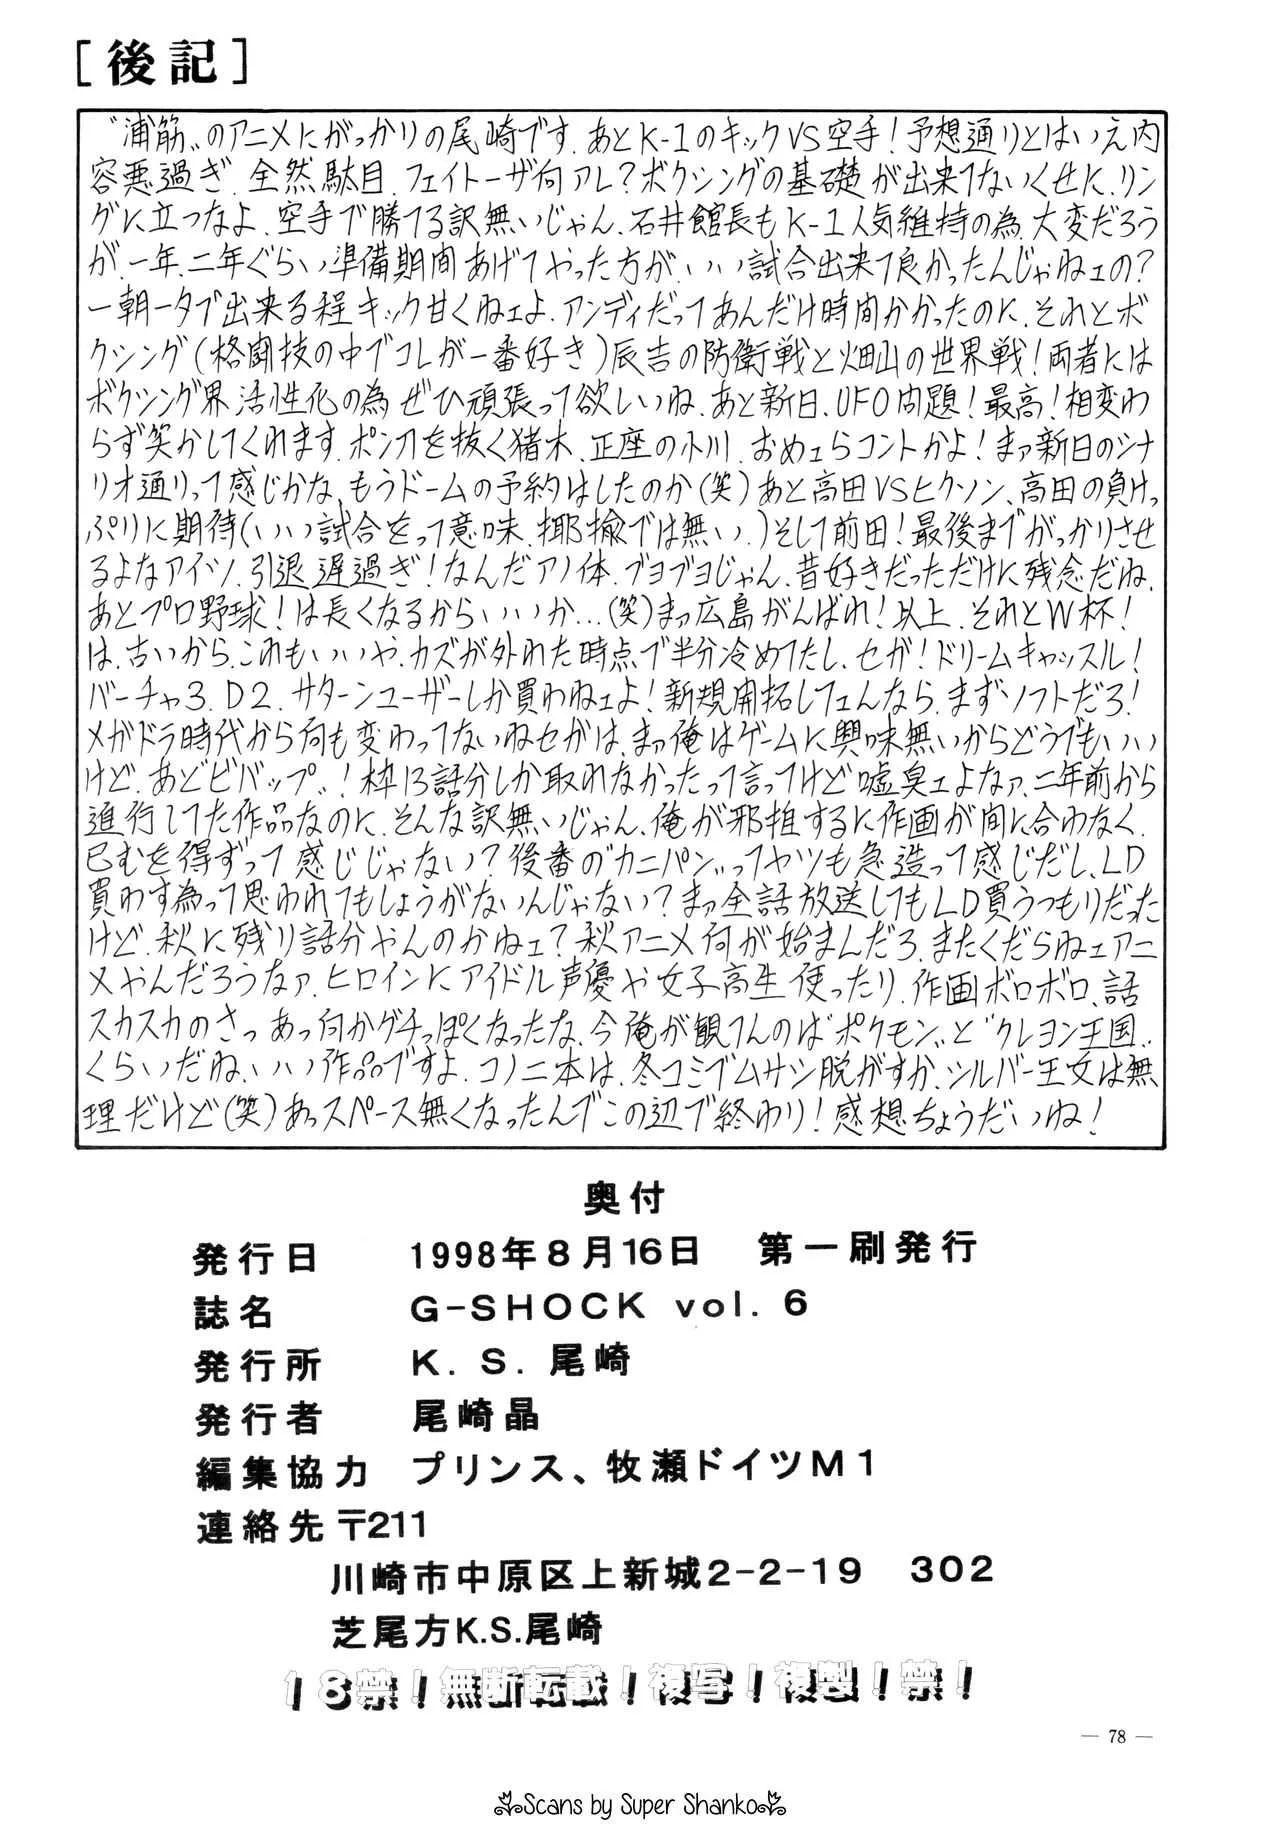 [後記]
“浦筋”のアニメにがっかりの尾崎です。あとK-1のキックVS空手！予想通りとはいえ内
容悪過ぎ、全然駄目、フェイトーザ何アレ？ボクシングの基礎が出来てないくせに、リン
グに立つなよ、空手で勝てる訳無いじゃん、石井館長もK-1人気維持の為、大変だろう
が、一年、二年ぐらい準備期間あげてやった方が、いい試合出来て良かったんじゃねェの？
一朝一夕で出来る程キック甘くねェよ、アンディだってあんだけ時間かかったのに、それとボ
クシング(格闘技の中でコレが一番好き)辰吉の防衛戦と畑山の世界戦！両者には
ボクシング界活性化の為ぜひ頑張って欲しいね、あと新日、UFO問題！最高！相変わ
らず笑かしてくれます、ポン刀を抜く猪木、正座の小川、おめェらコントかよ！まァ新日のシナ
リオ通りって感じかな、もうドームの予約はしたのか(笑)あと高田VSヒクソン、高田の負けっ
ぷりに期待(いい試合をって意味、揶揄では無い。)そして前田！最後までがっかりさせ
るよなアイツ、引退遅過ぎ！なんだアノ体、ブヨブヨじゃん、昔好きだっただけに残念だね、
あとプロ野球！は長くなるからいいか…(笑)まァ広島がんばれ！以上、それとW杯！
は、古いから、これもいいや、カズが外れた時点で半分冷めてたし、セガ！ドリームキャッスル！
バーチャ3、D2、サターンユーザーしか買わねェよ！新規開拓してェんなら、まずソフトだろ！
メガドラ時代から何も変わってないねセガは、まァ俺はゲームに興味無いからどうでもいい
けど、あと“ビバップ”！枠13話分しか取れなかったって言ってけど嘘臭ェよなァ、二年前から
進行してた作品なのに、そんな訳無いじゃん、俺が邪推するに作画が間に合わなく、
已むを得ずって感じじゃない？後番の“カニパン”ってヤツも急造って感じだし、LD
買わす為って思われてもしょうがないんじゃない？まァ全話放送してもLD買うつもりだった
けど、秋に残り話分やんのかねェ？秋アニメ何が始まんだろ、またくだらねェアニ
メやんだろうなァ、ヒロインにアイドル声優や女子高生使ったり、作画ボロボロ、話
スカスカのさっ、あっ何かグチっぽくなったな、今俺が観てんのは“ポケモン”と“クレヨン王国”
くらいだね、いい作品ですよ、コノ二本は、冬コミでムサシ脱がすか、シルバー王女は無
理だけど(笑)あっスペース無くなったんでこの辺で終わり！感想ちょうだいね！
奥付
発行日 1998年8月16日 第一刷発行
誌名 G-SHOCK vol. 6
発行所 K. S. 尾崎
発行者 尾崎晶
編集協力 プリンス、牧瀬ドイツM1
連絡先〒211
川崎市中原区上新城2-2-19 302
芝尾方K.S.尾崎
18禁！無断転載！複写！複製！禁！
— 78 —
Scans by Super Shanko